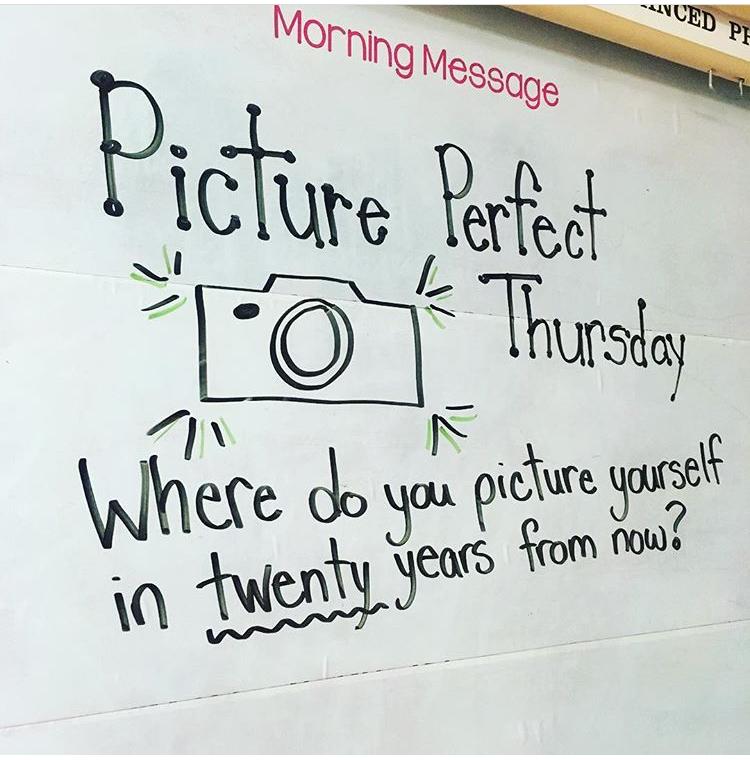 Morning Message
Picture Perfect
Thursday
Where do you picture yourself
in twenty years from now?